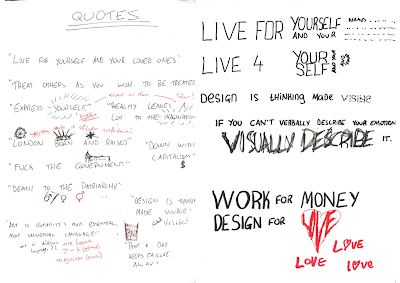 QUOTES
"LIVE FOR YOURSELF AND YOUR LOVED ONES"
"TREAT OTHERS AS YOU WISH TO BE TREATED"
"EXPRESS YOURSELF"
"REALITY LEAVES A
LOT TO THE IMAGINATION"
"LONDON BORN AND RAISED"
"DOWN WITH
CAPITALISM"
$
"FUCK THE GOVERNMENT"
"DEATH TO THE PATRIARCHY"
"DESIGN IS THINKING
MADE VISIBLE"
VISIBLE
"ART IS HUMANITY'S MOST ESSENTIAL,
MOST UNIVERSAL LANGUAGE"
"ART A DAY
KEEPS
LIVE FOR YOURSELF
AND YOUR
LIVE 4 YOUR
SELF
DESIGN is thinking MADE VISIBLE
IF YOU CAN'T VERBALLY DESCRIBE YOUR EMOTION
VISUALLY DESCRIBE IT.
WORK FOR MONEY
DESIGN FOR LOVE
LOVE
LOVE
love